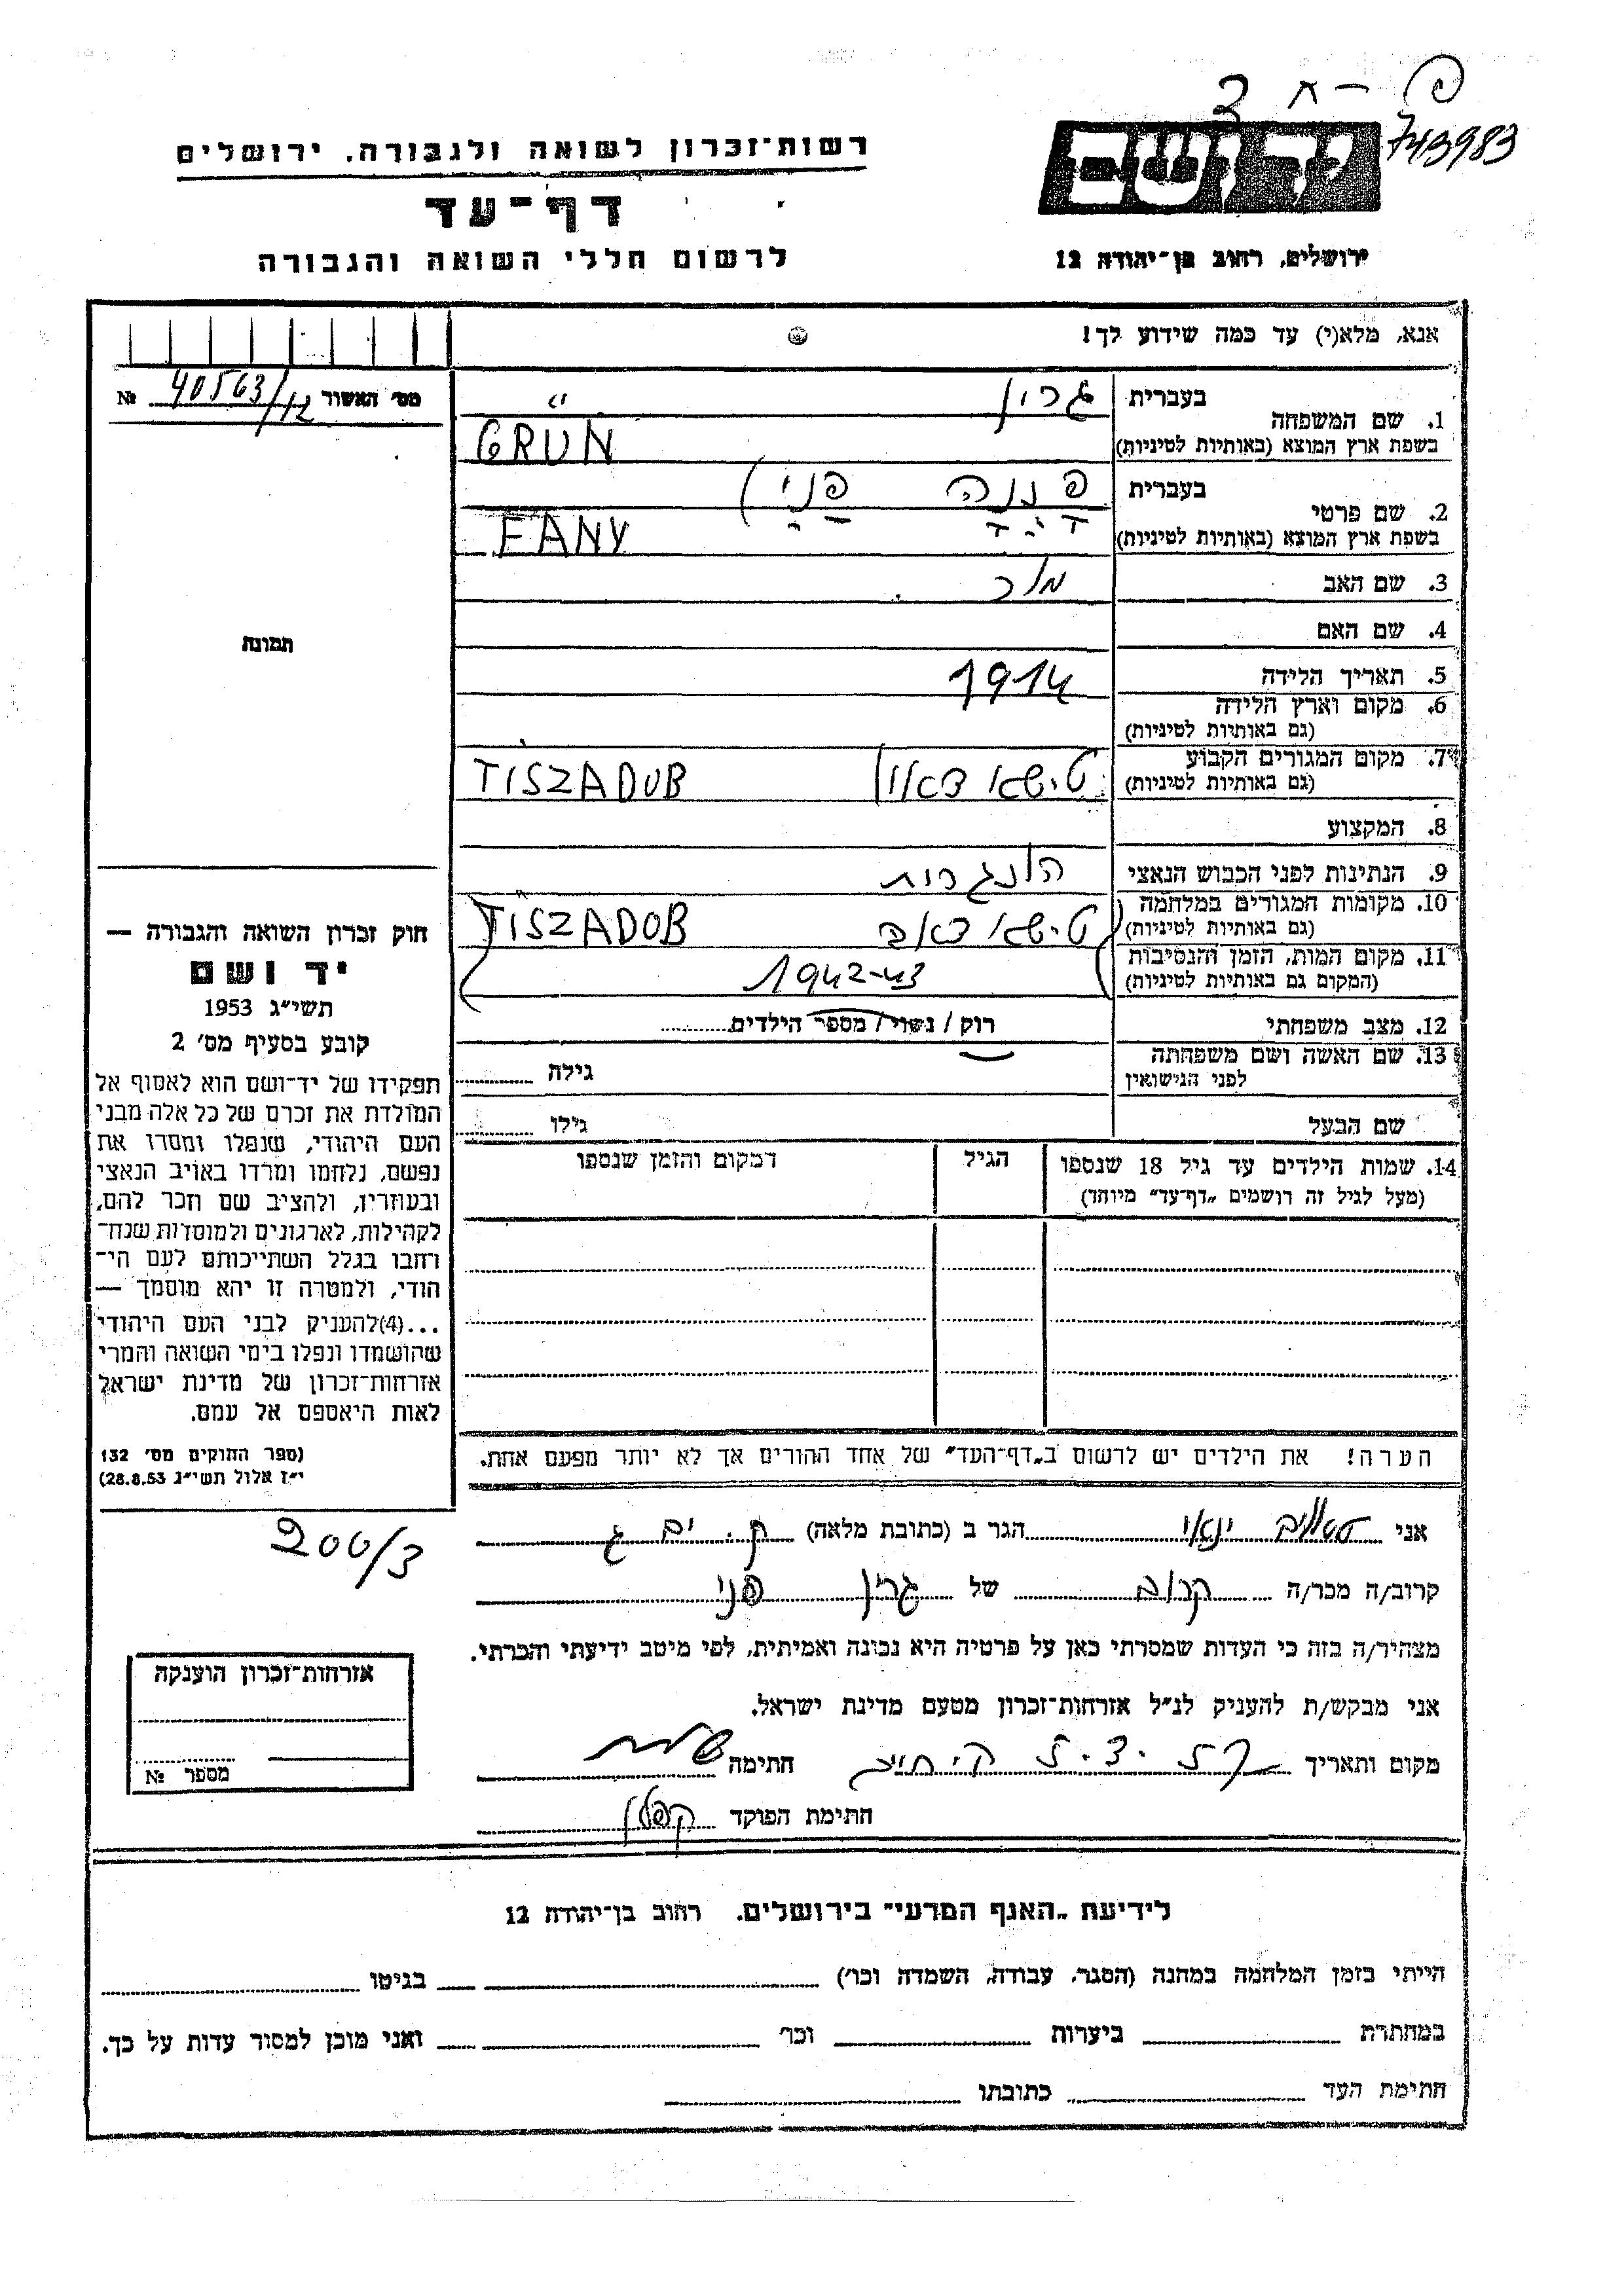 פ – ח צ
743983
יד ושם
רשות־זכרון לשואה ולגבורה, ירושלים
דף־עד
לרשום חללי השואה והגבורה
ירושלים, רחוב בן־יהודה 12
אנא, מלא(י) עד כמה שידוע לך!
מס' האשור 40563/12 №
1. שם המשפחה
בעברית גרין
בשפת ארץ המוצא (באותיות לטיניות) GRÜN
2. שם פרטי
בעברית פננה (פני
בשפת ארץ המוצא (באותיות לטיניות) FANY
3. שם האב
4. שם האם
5. תאריך הלידה 1914
6. מקום וארץ הלידה
(גם באותיות לטיניות)
7. מקום המגורים הקבוע
(גם באותיות לטיניות) TISZADOB
8. המקצוע
9. הנתינות לפני הכבוש הנאצי הונגרית
10. מקומות המגורים במלחמה
(גם באותיות לטיניות) טישא דאב TISZADOB
11. מקום המות, הזמן והנסיבות
(המקום גם באותיות לטיניות) 1942-43
12. מצב משפחתי רוק / נשוי / מספר הילדים
13. שם האשה ושם משפחתה
לפני הנישואין גילה
שם הבעל גילו
14. שמות הילדים עד גיל 18 שנספו
(מעל לגיל זה רושמים „דף־עד" מיוחד)
הגיל
המקום והזמן שנספו
הערה! את הילדים יש לרשום ב„דף־העד" של אחד ההורים אך לא יותר מפעם אחת.
תמונה
חוק זכרון השואה והגבורה —
יד ושם
תשי"ג 1953
קובע בסעיף מס' 2
תפקידו של יד־ושם הוא לאסוף אל
המולדת את זכרם של כל אלה מבני
העם היהודי, שנפלו ומסרו את
נפשם, נלחמו ומרדו באויב הנאצי
ובעוזריו, ולהציב שם וזכר להם,
לקהילות, לארגונים ולמוסדות שנח־
רחבו בגלל השתייכותם לעם הי־
הודי, ולמטרה זו יהא מוסמך —
...(4)להעניק לבני העם היהודי
שהושמדו ונפלו בימי השואה והמרי
אזרחות־זכרון של מדינת ישראל
לאות היאספם אל עמם.
(ספר החוקים מס' 132
י"ז אלול תשי"ג 28.8.53)
200/3
אני ינאי הגר ב (כתובת מלאה) ק. ים ג
קרוב/ה מכר/ה קרוב של גרין פני
מצהיר/ה בזה כי העדות שמסרתי כאן על פרטיה היא נכונה ואמיתית, לפי מיטב ידיעתי והכרתי.
אני מבקש/ת להעניק לנ"ל אזרחות־זכרון מטעם מדינת ישראל.
מקום ותאריך חתימה
חתימת הפוקד קפלן
אזרחות־זכרון הוענקה
מספר №
לידיעת „האגף המדעי" בירושלים. רחוב בן־יהודה 12
הייתי בזמן המלחמה במחנה (הסגר, עבודה, השמדה וכו') בגיטו
במחתרת ביערות וכו' ואני מוכן למסור עדות על כך.
חתימת העד כתובתו